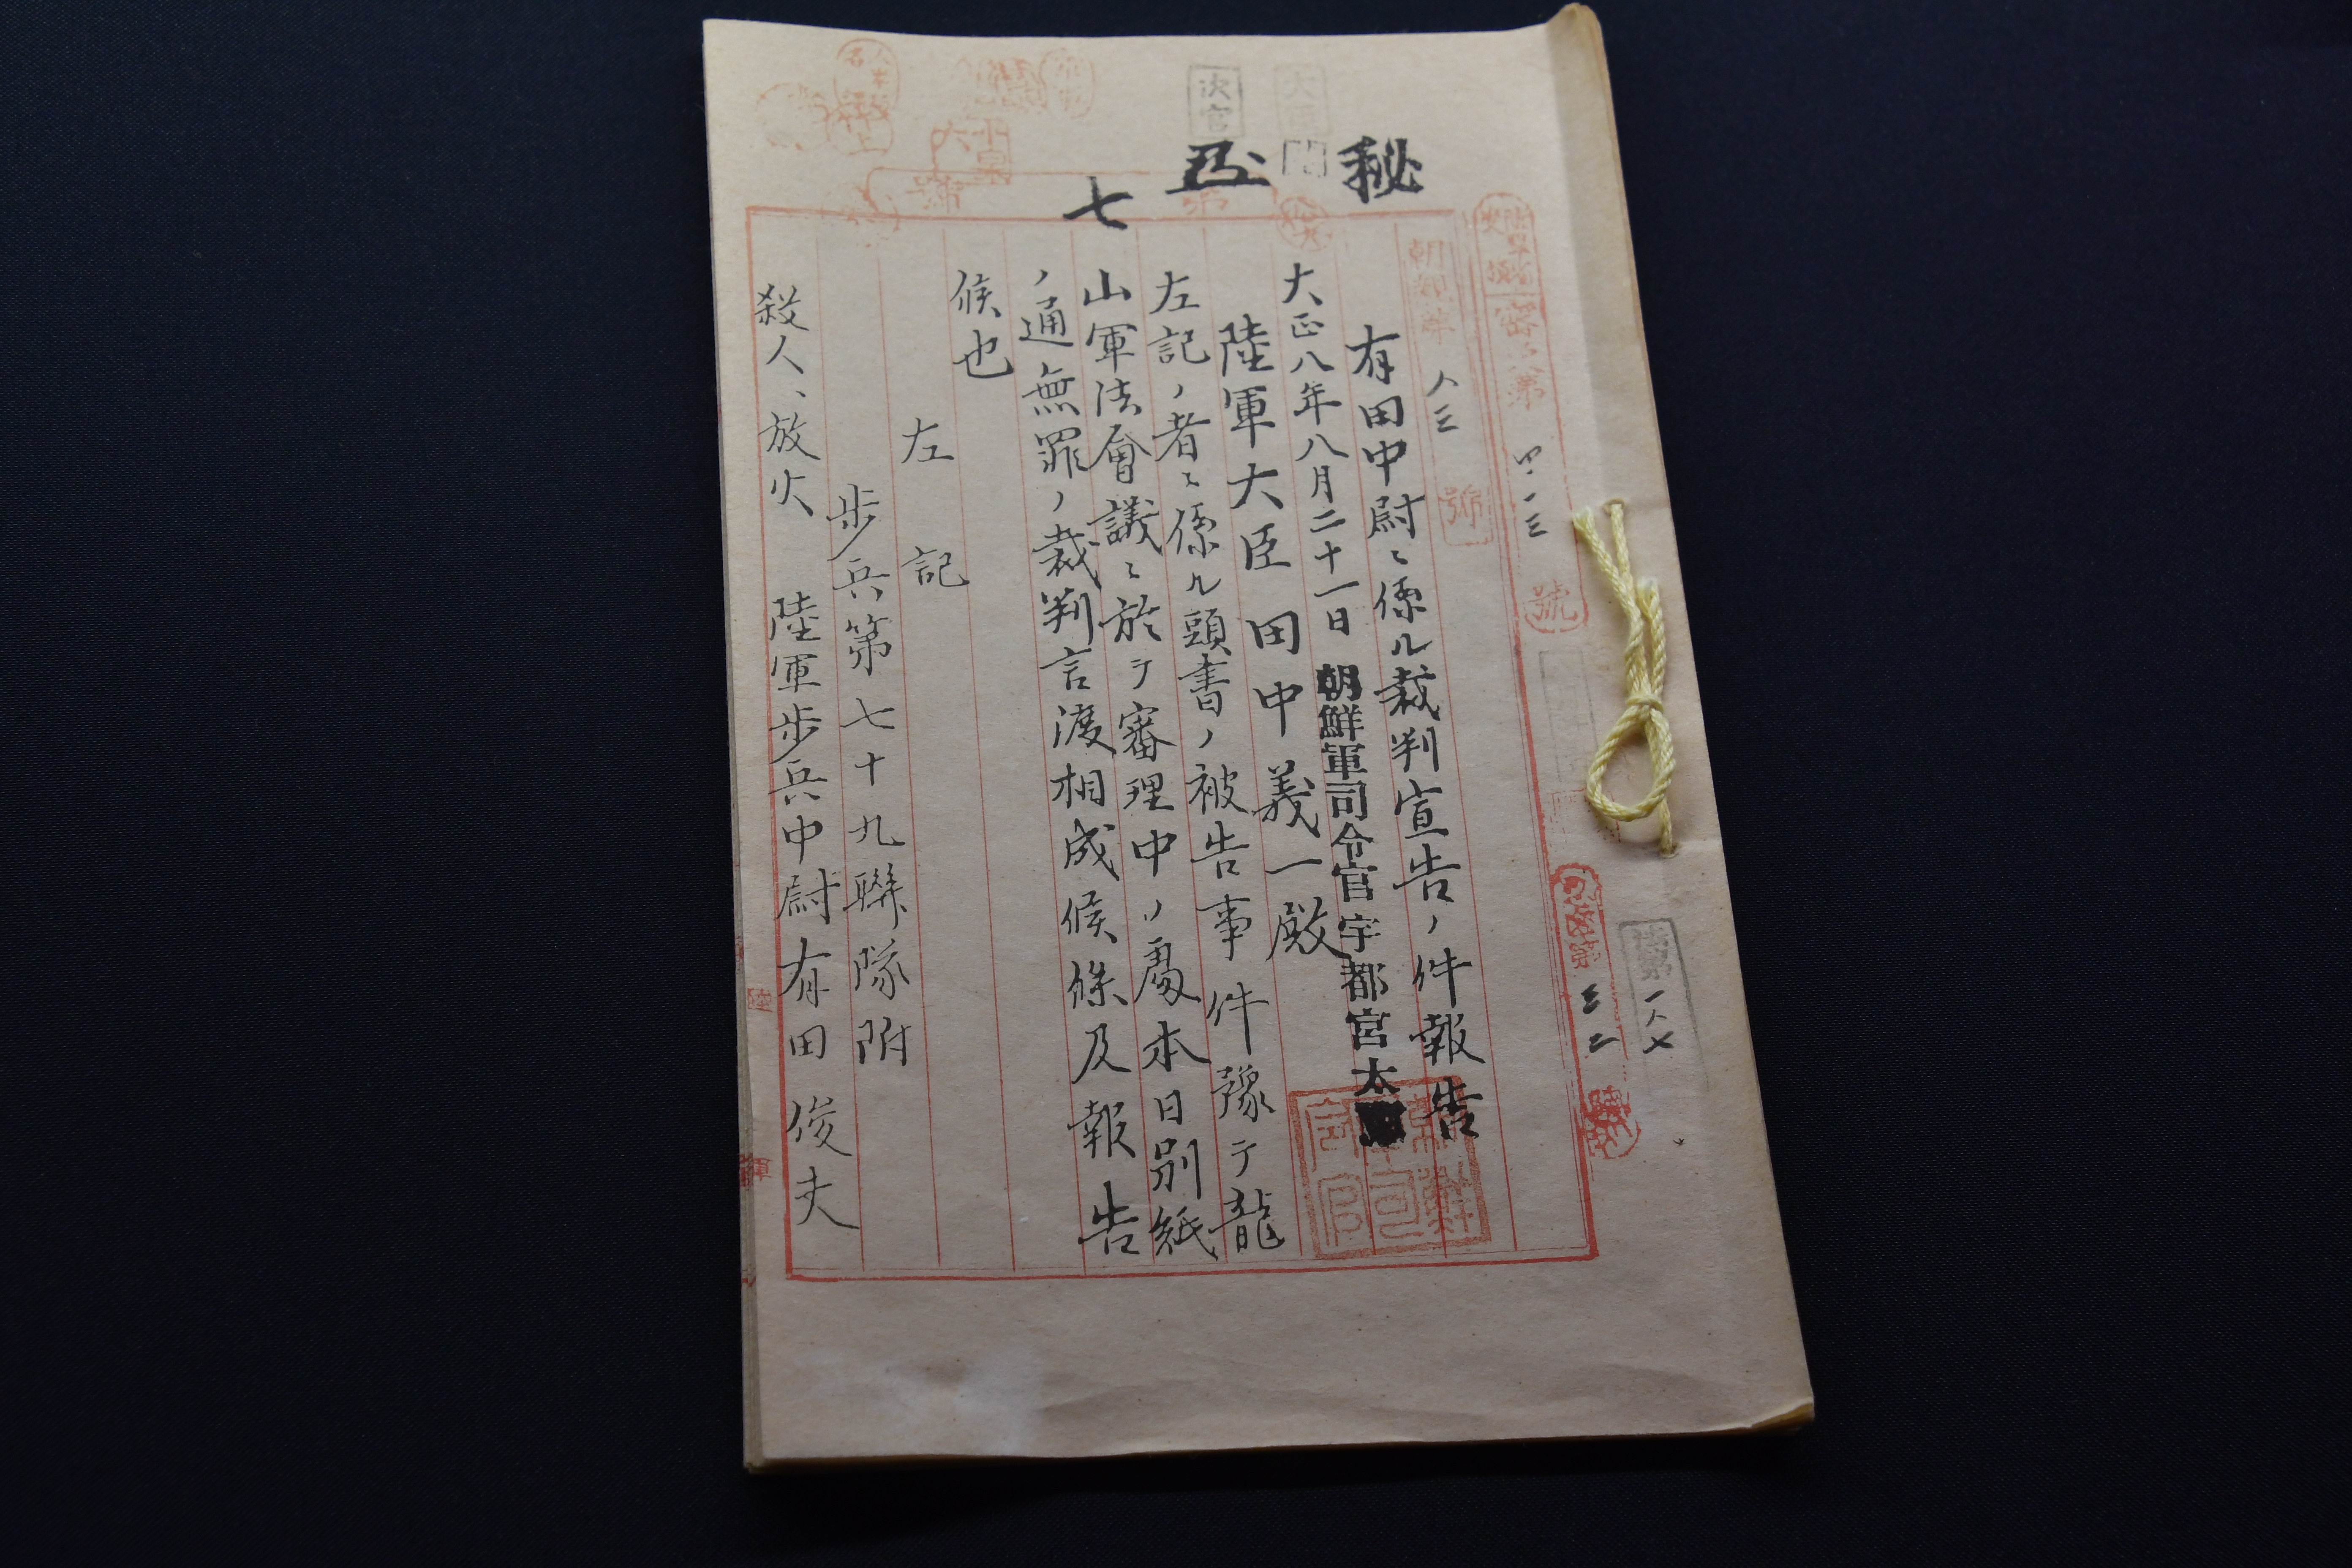 秘
七
號
密
第
四一三
號
朝鮮軍
人三
號
第
三二
第
一八七
有田中尉ニ係ル裁判宣告ノ件報告
大正八年八月二十一日 朝鮮軍司令官宇都宮太
陸軍大臣 田中義一殿
左記ノ者ニ係ル頭書ノ被告事件豫テ龍
山軍法會議ニ於テ審理中ノ處本日別紙
ノ通無罪ノ裁判言渡相成候條及報告
候也
左記
歩兵第七十九聯隊附
殺人、放火 陸軍歩兵中尉 有田俊夫